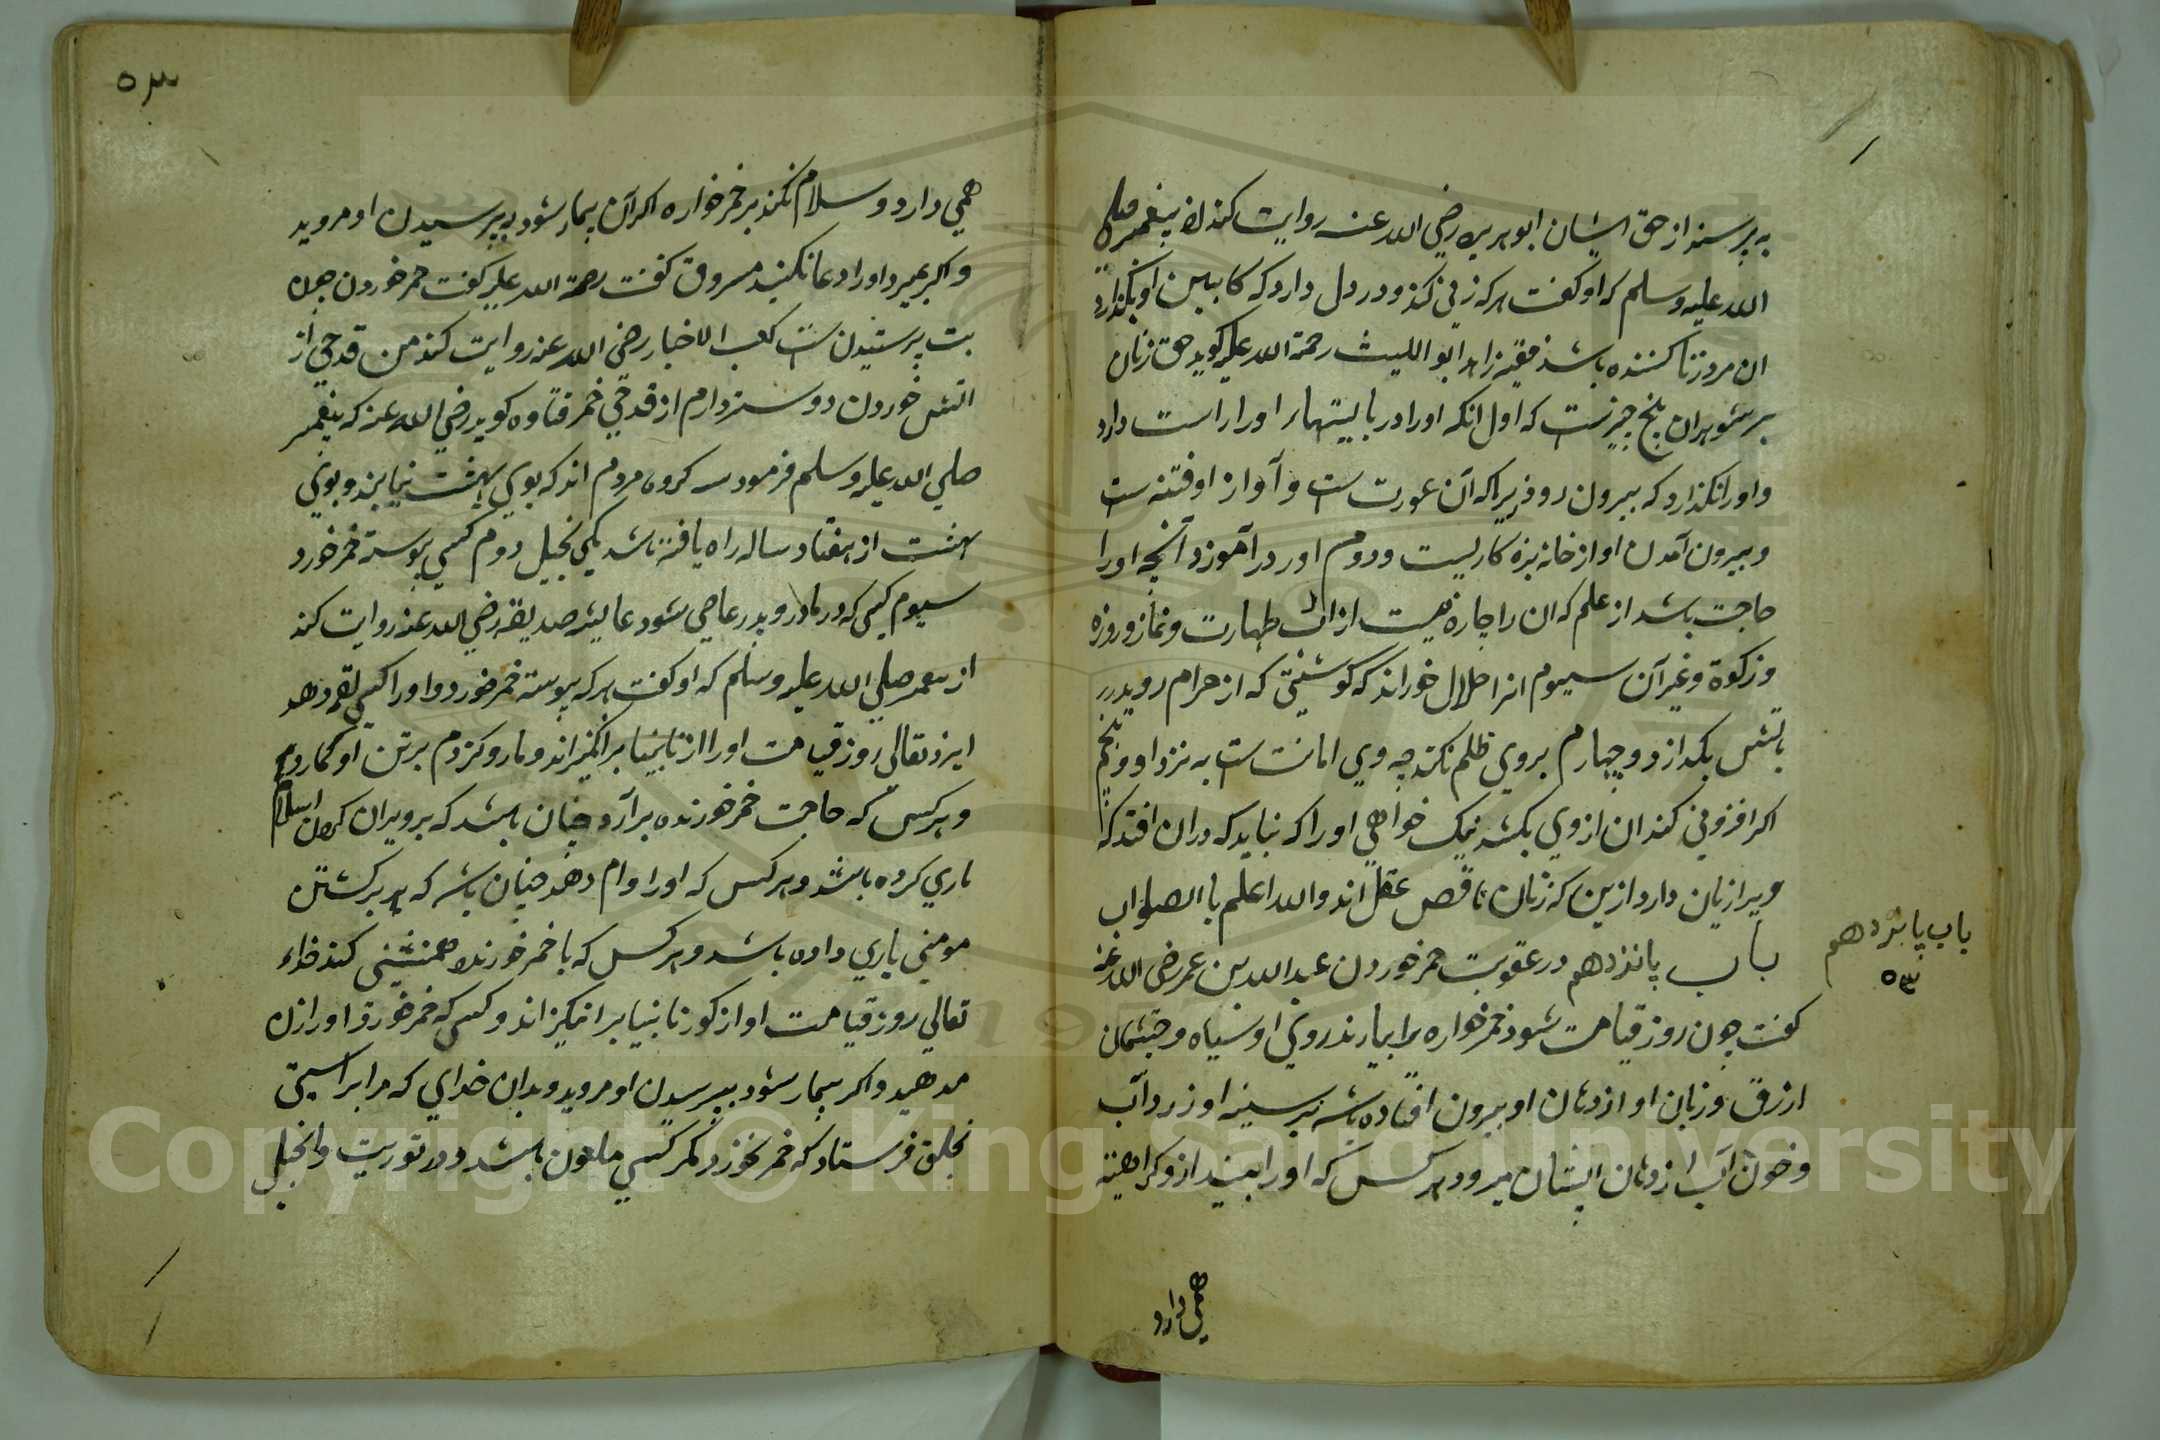 به پرسند از حق ایشان ابوهریره رضی الله عنه روایت کند از پیغمبر صلی
الله علیه وسلم که او کفت هرکه زنی کند و در دل دارد که کابین او نکذارد
ان مرد زنا کننده باشد فقیه زاهد ابو اللیث رحمة الله علیه کوید حق زنان
بر شوهران پنج چیزست که اول انکه او را در بایستهاء او را راست دارد
و او را نکذارد که بیرون رود زیراکه آن عورت ست و آواز او فتنه ست
و بیرون آمدن او از خانه بزه کاریست و دوم او را در آموزد آنچه او را
حاجت باشد از علم که ان را چاره نیست از ان طهارت و نماز و روزه
و زکوة و غیر آن سیوم انرا حلال خوراند که کوشتی که از حرام روید در
باتش بکدازد و چهارم بروی ظلم نکند چه وی امانت ست به نزد او و پنجم
اکر افزونی کند ان از وی بکشد نیک خواهی او را که نباید که دران افتد که
ویرا زیان دارد ازین که زنان ناقص عقل اند والله اعلم با الصواب
باب پانزدهم در عقوبت خمر خوردن عبد الله بن عمر رضی الله عنه
کفت چون روز قیامت شود خمر خواره را بیارند روی او سیاه و چشمان
ازرق و زبان او از دهان او بیرون افتاده باشد بر سینه او زرد آب
و خون آب از دهان ایشان میرود هرکس که او را بیند از وکراهیته
همی دارد
باب پانزدهم
۵۳
۵۳
همی دارد و سلام نکند بر خمر خواره اکر آن بیمار شود به پرسیدن او مروید
و اکر بمیرد او را دعا نکنید مسروق کفت رحمة الله علیه کفت خمر خوردن چون
بت پرستیدن ست کعب الاخبار رضی الله عنه روایت کند من قدحی از
اتش خوردن دوستر دارم از قدحی خمر قتاوه کوید رضی الله عنه که پیغمبر
صلی الله علیه وسلم فرمود سه کروه مردم اند که بوی بهشت نیابند و بوی
بهشت از هفتاد ساله راه یافته باشد یکی بخیل دوم کسی پیوسته خمر خورد
سیوم کسی که در مادر و پدر عاصی شود عایشه صدیقه رضی الله عنه روایت کند
از پیغمبر صلی الله علیه وسلم که او کفت هرکه پیوسته خمر خورد و او را کسی لقمه دهد
ایزد تعالی روز قیامت او را از نابینا برانکیزاند و مار و کزدم بر تن او کمارد
و هرکس که حاجت خمر خورنده برآرد چنان باشد که بر ویران کردن اسلام
یاری کرده باشد و هرکس که او را وام دهد چنان باشد که بر کشتن
مومنی یاری داده باشد و هرکس که با خمر خورنده همنشینی کند خداء
تعالی روز قیامت او از کور نابینا برانکیزاند و کسی که خمر خورد او را زن
مدهید و اکر بیمار شود بپرسیدن او مروید و بدان خدای که مرا براستی
بخلق فرستاد که خمر نخورد مکر کسی ملعون باشد و در توریت و انجیل